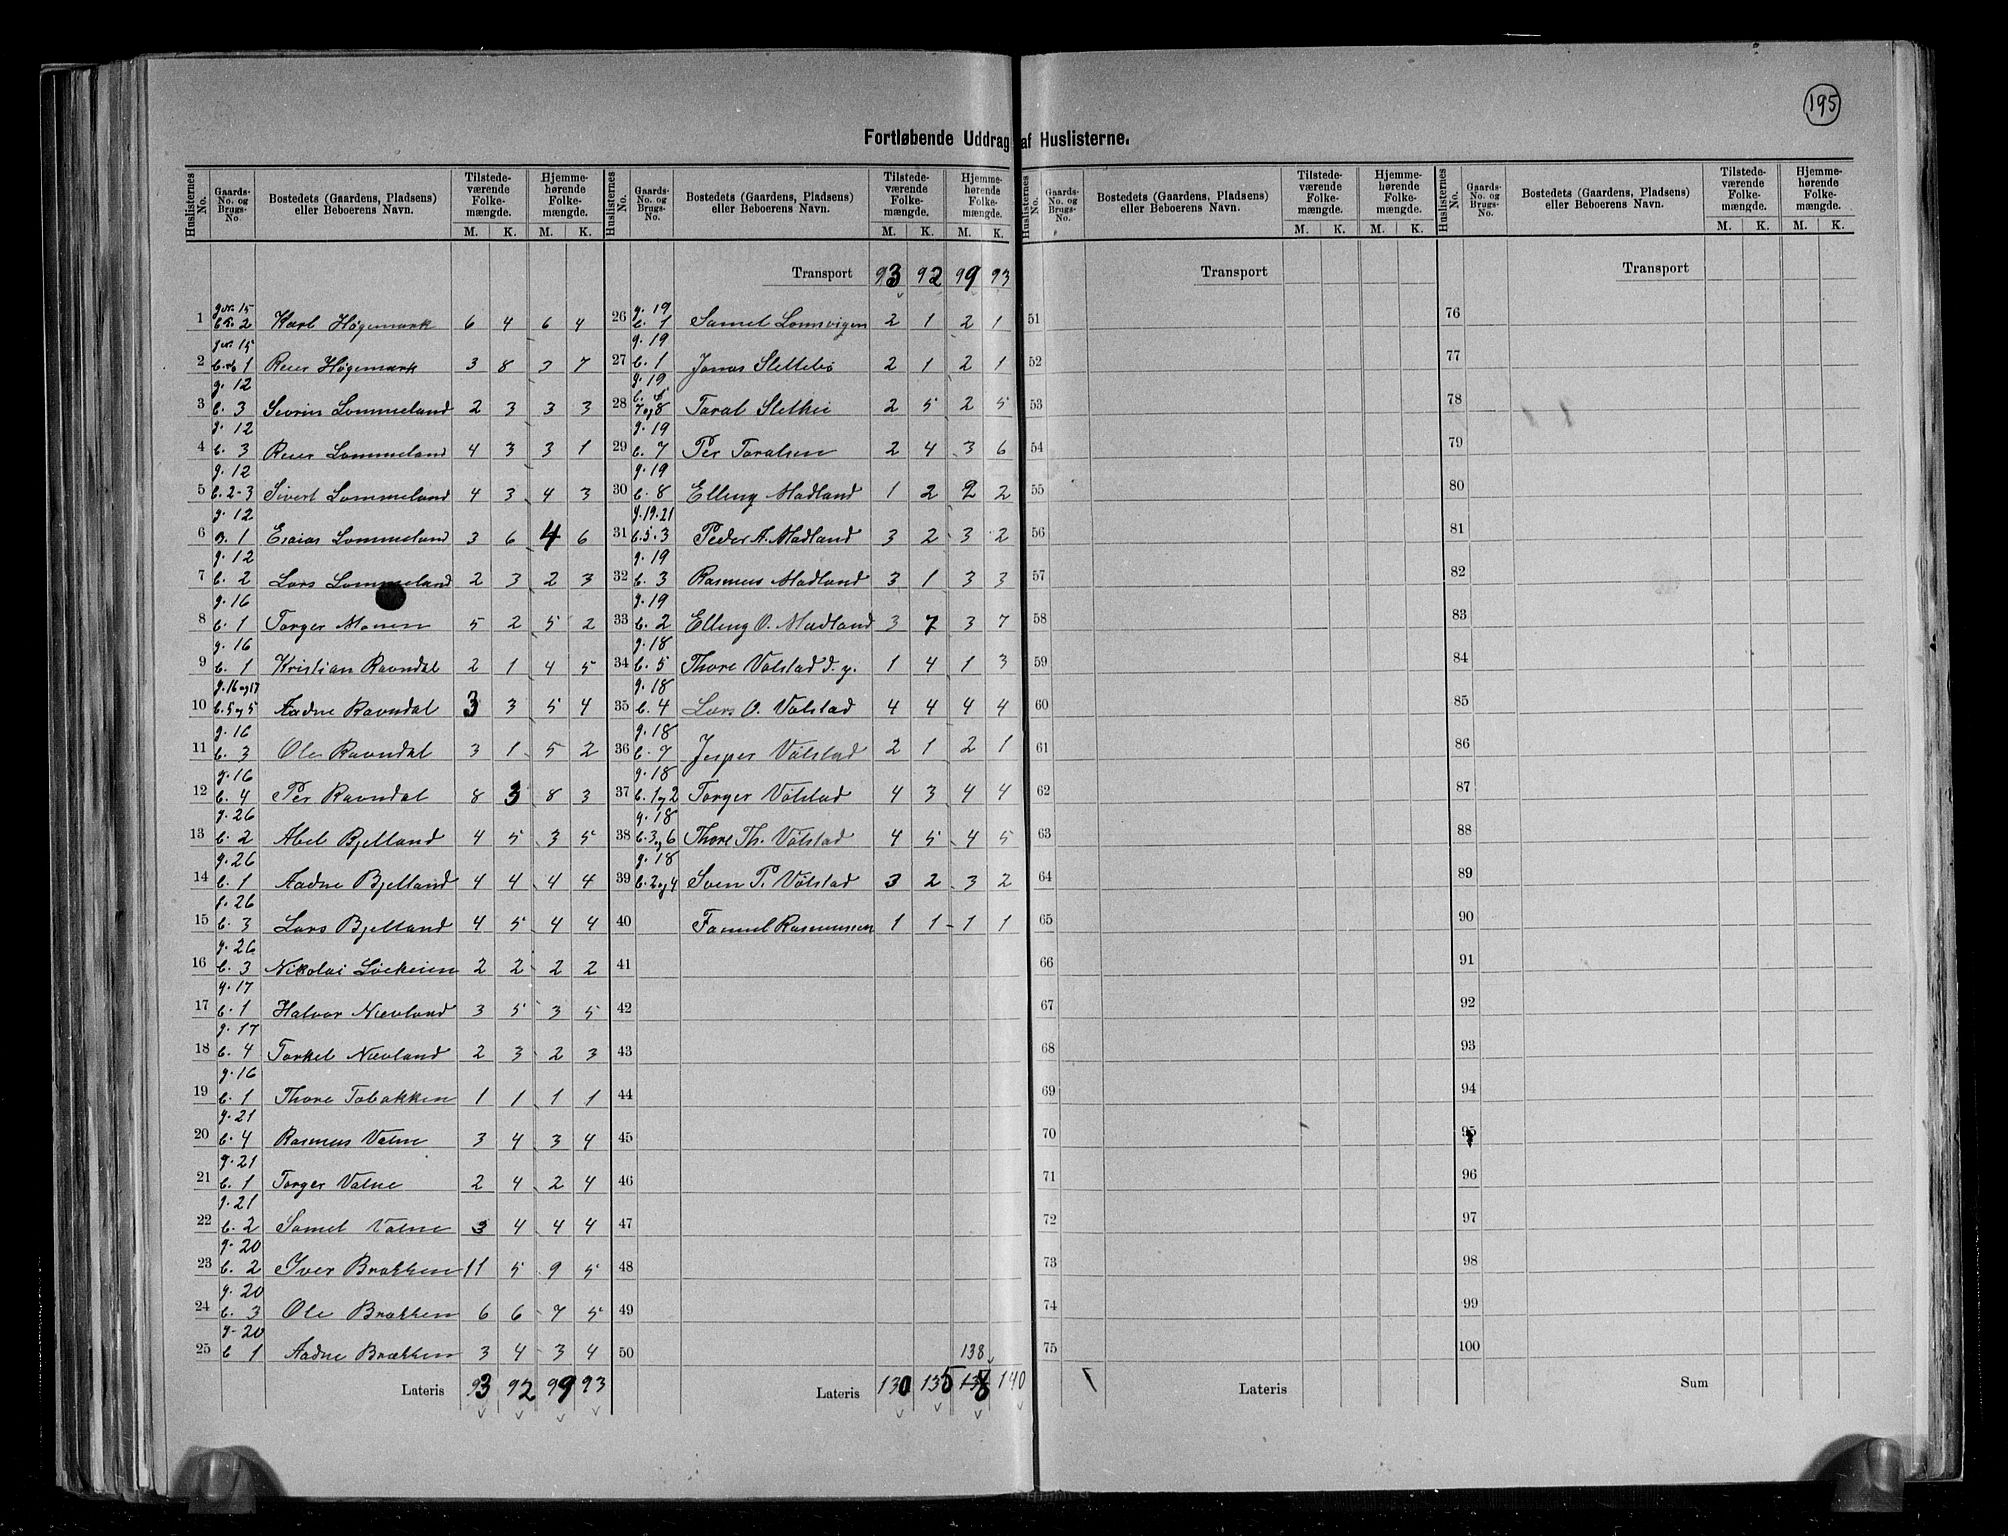 195
Fortløbende Uddrag af Huslisterne.
Huslisternes No. | Gaards-No. og Brugs-No. | Bostedets (Gaardens, Pladsens) eller Beboerens Navn. | Tilstedeværende Folkemængde. M. K. | Hjemmehørende Folkemængde. M. K.
1 | g.nr. 15 b.no 2 | Karl Högemark | 6 | 4 | 6 | 4
2 | g.nr. 15 b.no 1 | Reier Högemark | 3 | 8 | 3 | 7
3 | g. 12 b. 3 | Sevrin Lommeland | 2 | 3 | 3 | 3
4 | g. 12 b. 3 | Reier Lommeland | 4 | 3 | 3 | 1
5 | g. 12 b. 2-3 | Sivert Lommeland | 4 | 3 | 4 | 3
6 | g. 12 B. 1 | Esaias Lommeland | 3 | 6 | 4 | 6
7 | g. 12 b. 2 | Lars Lommeland | 2 | 3 | 2 | 3
8 | g. 16 b. 1 | Torger Monen | 5 | 2 | 5 | 2
9 | g. 16 b. 1 | Kristian Ravndal | 2 | 1 | 4 | 5
10 | g. 16 og 17 b. 5 og 5 | Aadne Ravndal | 3 | 3 | 5 | 4
11 | g. 16 b. 3 | Ole Ravndal | 3 | 1 | 5 | 2
12 | g. 16 b. 4 | Per Ravndal | 8 | 3 | 8 | 3
13 | g. 26 b. 2 | Abel Bjelland | 4 | 5 | 3 | 5
14 | g. 26 b. 1 | Aadne Bjelland | 4 | 4 | 4 | 4
15 | g. 26 b. 3 | Lars Bjelland | 4 | 5 | 4 | 4
16 | g. 26 b. 3 | Nikolai | 2 | 2 | 2 | 2
17 | g. 17 b. 1 | Halvor Nævland | 3 | 5 | 3 | 5
18 | g. 17 b. 4 | Torkel Nævland | 2 | 3 | 2 | 3
19 | g. 16 b. 1 | Thore Tobakken | 1 | 1 | 1 | 1
20 | g. 21 b. 4 | Rasmus Valne | 3 | 4 | 3 | 4
21 | g. 21 b. 1 | Torger Valne | 2 | 4 | 2 | 4
22 | g. 21 b. 2 | Samel Valne | 3 | 4 | 4 | 4
23 | g. 20 b. 2 | Iver Brækken | 11 | 5 | 9 | 5
24 | g. 20 b. 3 | Ole Brækken | 6 | 6 | 7 | 5
25 | g. 20 b 1 | Aadne Brækken | 3 | 4 | 3 | 4
Lateris | 93 | 92 | 99 | 93
Huslisternes No. | Gaards-No. og Brugs-No. | Bostedets (Gaardens, Pladsens) eller Beboerens Navn. | Tilstedeværende Folkemængde. M. K. | Hjemmehørende Folkemængde. M. K.
Transport | 93 | 92 | 99 | 93
26 | g. 19 b. 1 | Samel Lomsvigen | 2 | 1 | 2 | 1
27 | g. 19 b. 1 | Jonas Slettebö | 2 | 1 | 2 | 1
28 | g. 19 b. 7 og 8 | Taral | 2 | 5 | 2 | 5
29 | g. 19 b. 7 | Per Taralsen | 2 | 4 | 3 | 6
30 | g. 19 b. 8 | Elling Madland | 1 | 2 | 2 | 2
31 | g. 19. 21 b. 5. 3 | Peder A. Madland | 3 | 2 | 3 | 2
32 | g. 19 b. 3 | Rasmus Madland | 3 | 1 | 3 | 3
33 | g. 19 b. 2 | Elling O. Madland | 3 | 7 | 3 | 7
34 | g. 18 b. 5 | Thore Vølstad d. y. | 1 | 4 | 1 | 3
35 | g. 18 b. 4 | Lars O. Vølstad | 4 | 4 | 4 | 4
36 | g. 18 b. 7 | Jesper Vølstad | 2 | 1 | 2 | 1
37 | g. 18 b. 1 og 2 | Torger Vølstad | 4 | 3 | 4 | 4
38 | g. 18 b. 3 og 6 | Thore Th. Vølstad | 4 | 5 | 4 | 5
39 | g. 18 b. 2 og 4 | Sven P. Vølstad | 3 | 2 | 3 | 2
40 | Samuel Rasmussen | 1 | 1 | 1 | 1
41
42
43
44
45
46
47
48
49
50
138
Lateris | 130 | 135 | 138 | 140
Huslisternes No. | Gaards-No. og Brugs-No. | Bostedets (Gaardens, Pladsens) eller Beboerens Navn. | Tilstedeværende Folkemængde. M. K. | Hjemmehørende Folkemængde. M. K.
Transport
51
52
53
54
55
56
57
58
59
60
61
62
63
64
65
66
67
68
69
70
71
72
73
74
75
Lateris
Huslisternes No. | Gaards-No. og Brugs-No. | Bostedets (Gaardens, Pladsens) eller Beboerens Navn. | Tilstedeværende Folkemængde. M. K. | Hjemmehørende Folkemængde. M. K.
Transport
76
77
78
79
80
81
82
83
84
85
86
87
88
89
90
91
92
93
94
95
96
97
98
99
100
Sum